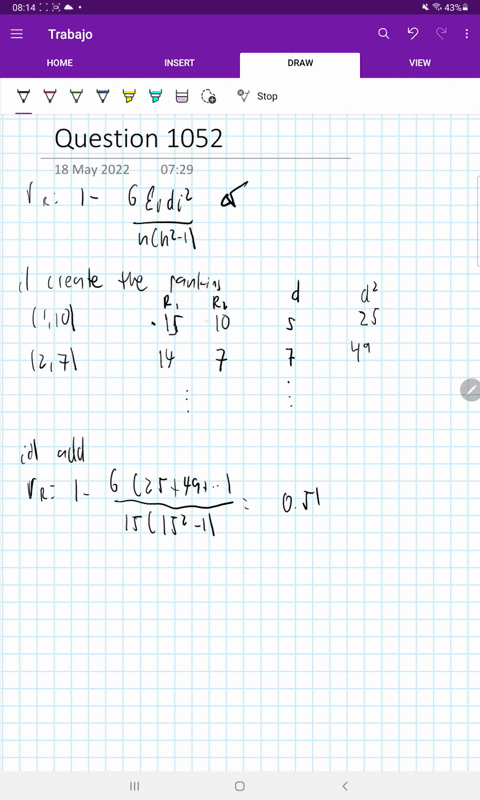 08:14 43%
Trabajo
HOME INSERT DRAW VIEW
Stop
Question 1052
18 May 2022 07:29
r_R: 1 - 6 Σidi²
n(n²-1)
i) create the
R₁ R₂ d d²
(1,10) 15 10 5 25
(2,7) 14 7 7 49
⋮ ⋮
ii) add
r_R: 1 - 6 (25+49+...)
15(15²-1) = 0.51